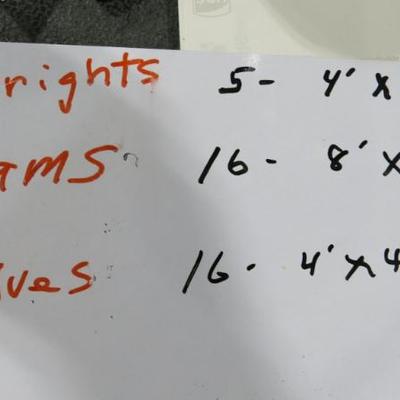 rights 5- 4' x
ams 16- 8' x
ves 16- 4' x 4